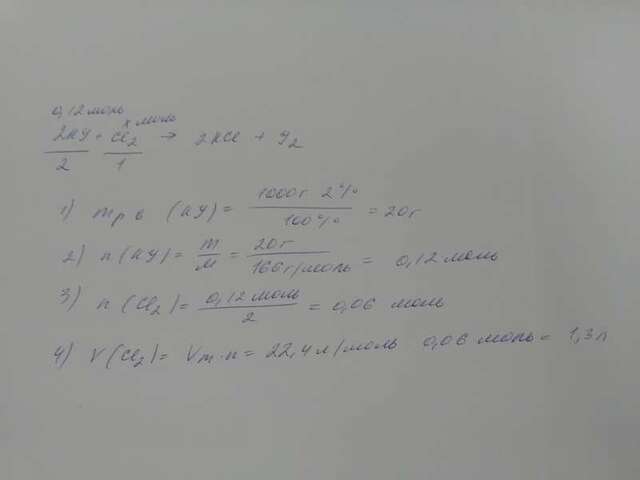 0,12 моль x моль
2КУ + Cl2 → 2КCl + У2
2 1
1) mр в (КУ) = 1000г 2% / 100% = 20г
2) n(КУ) = m/M = 20г / 166г/моль = 0,12 моль
3) n(Cl2) = 0,12 моль / 2 = 0,06 моль
4) V(Cl2) = Vm·n = 22,4 л/моль 0,06 моль = 1,3 л